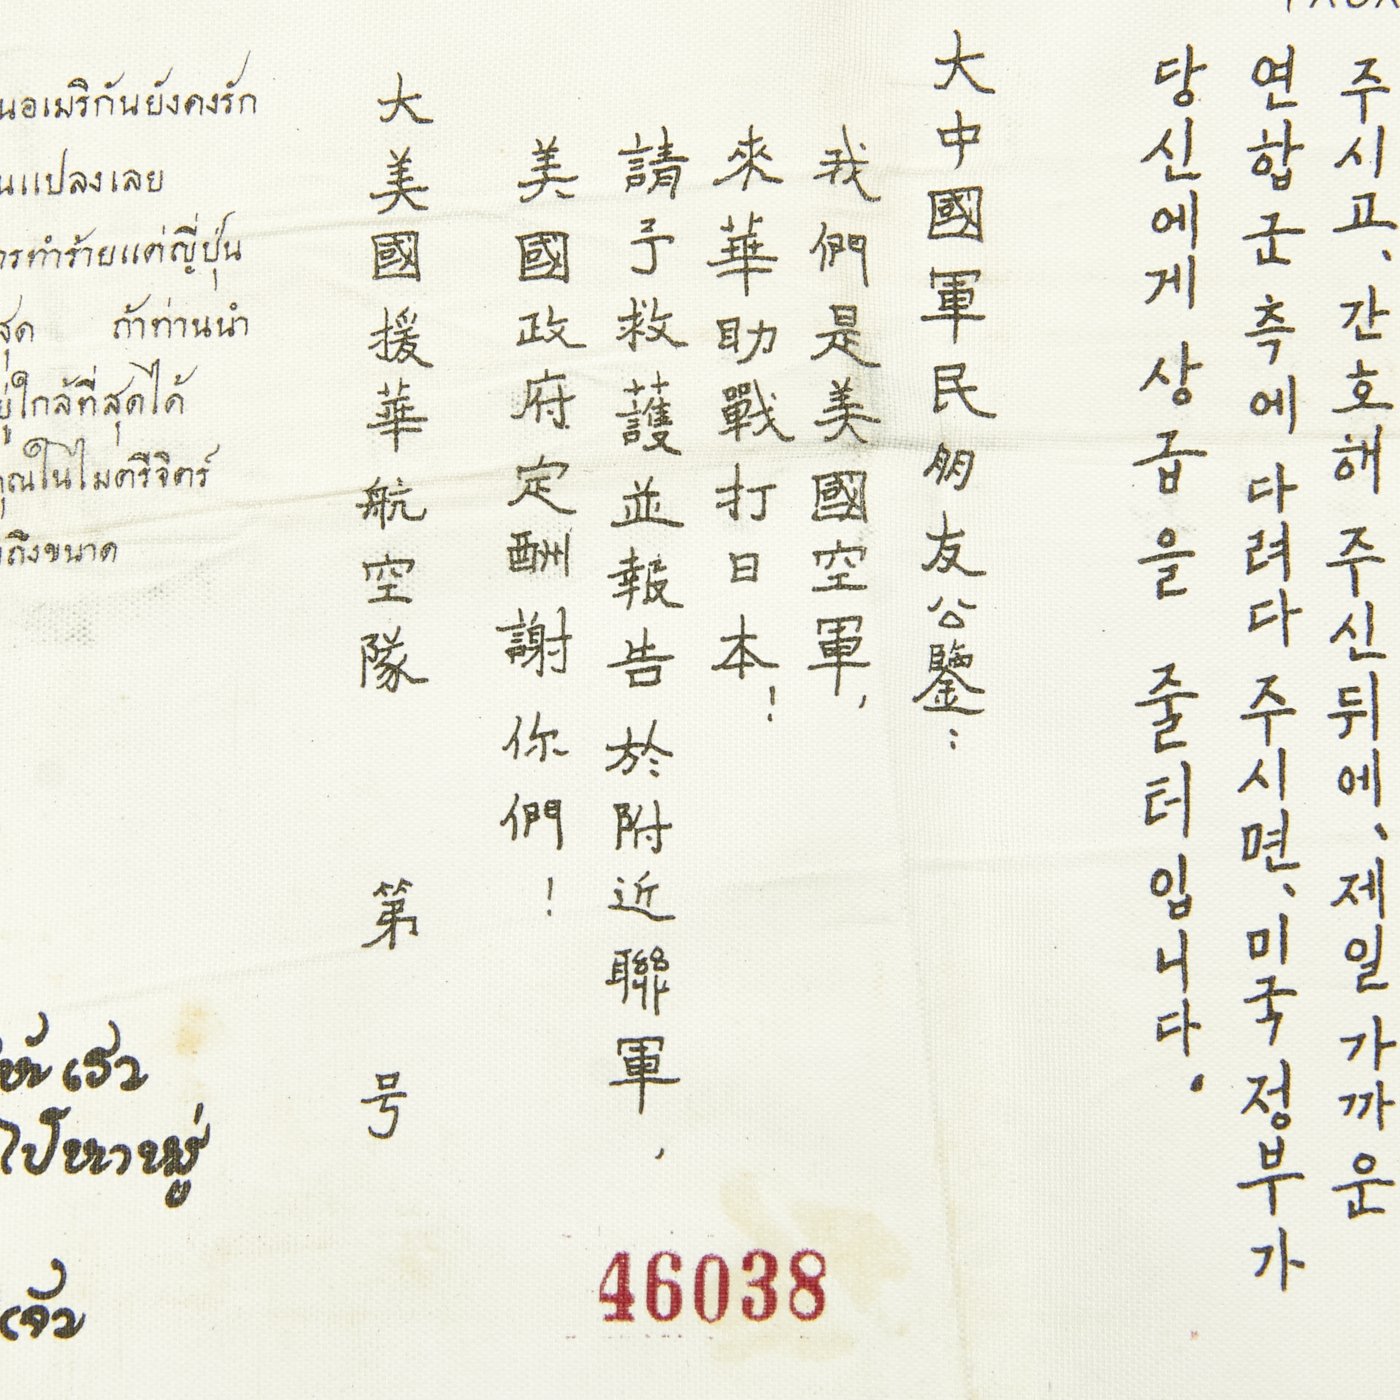 주시고、간호해 주신뒤에、제일 가까운
연합군측에 다려다 주시면、미국정부가
당신에게 상급을 줄터입니다.
大中國軍民朋友公鑒：
我們是美國空軍，
來華助戰打日本！
請予救護並報告於附近聯軍，
美國政府定酬謝你們！
大美國援華航空隊 第 号
46038
นอเมริกันยังคงรัก
นแปลงเลย
ารทำร้ายแต่ญี่ปุ่น
สุด ถ้าท่านนำ
ยู่ใกล้ที่สุดได้
คุณในไมตรีจิตร์
ถึงขนาด
เรา
ไปหาหมู่